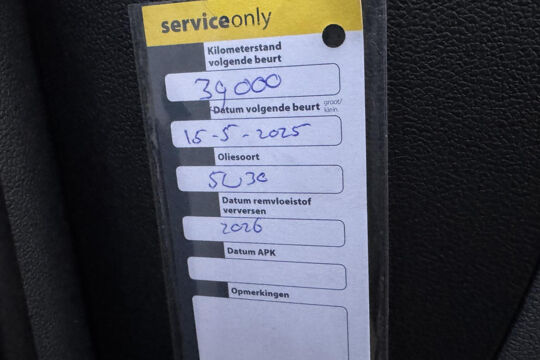 serviceonly
Kilometerstand
volgende beurt
39000
Datum volgende beurt groot/
klein
15-5-2025
Oliesoort
5W30
Datum remvloeistof
verversen
2026
Datum APK
Opmerkingen